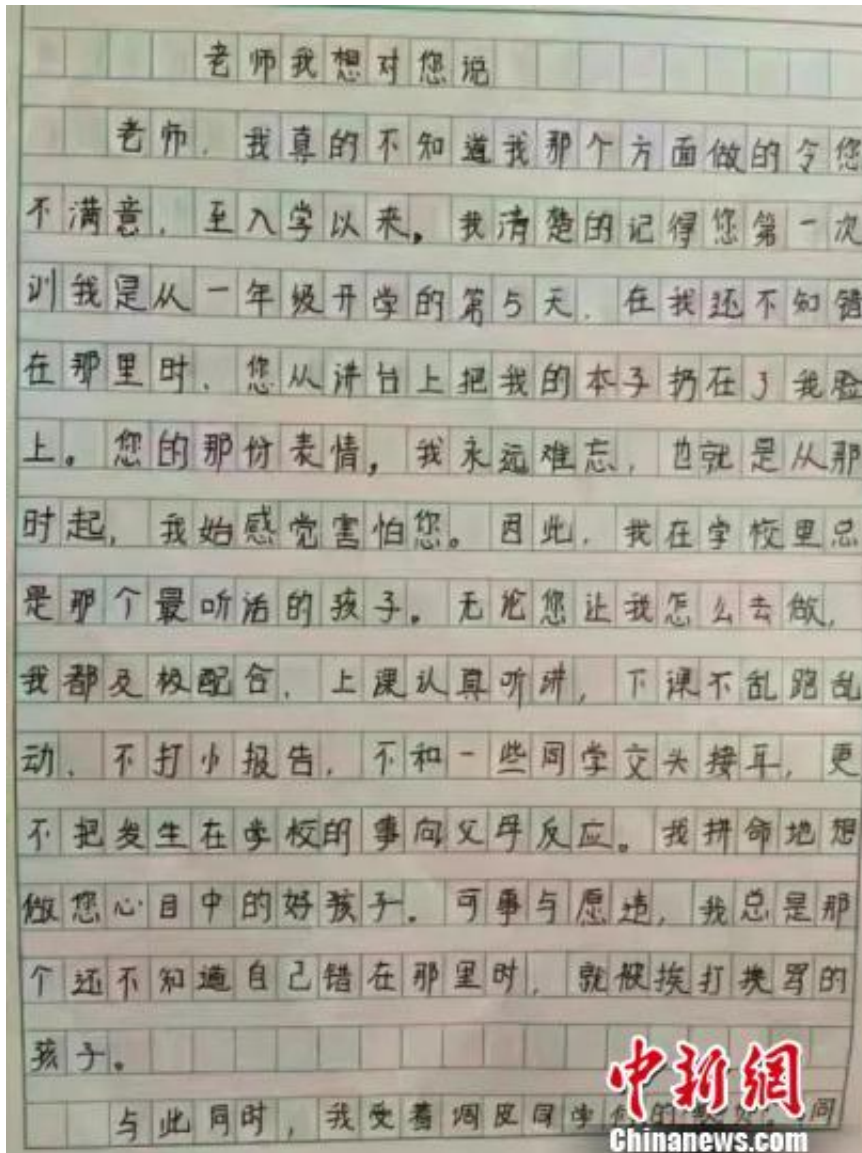 老师我想对您说
老师．我真的不知道我那个方面做的令您
不满意．至入学以来。我清楚的记得您第一次
训我是从一年级开学的第5天．在我还不知错
在那里时．您从讲台上把我的本子扔在了我脸
上。您的那份表情，我永远难忘，也就是从那
时起，我始感觉害怕您。因此．我在学校里总
是那个最听话的孩子。无论您让我怎么去做，
我都及极配合．上课认真听讲，下课不乱跑乱
动．不打小报告，不和一些同学交头接耳，更
不把发生在学校的事向父母反应。我拼命地想
做您心目中的好孩子。可事与愿违，我总是那
个还不知道自己错在那里时，就被挨打挨骂的
孩子。
与此同时，我受着调皮同学们的 同
中新网
Chinanews.com